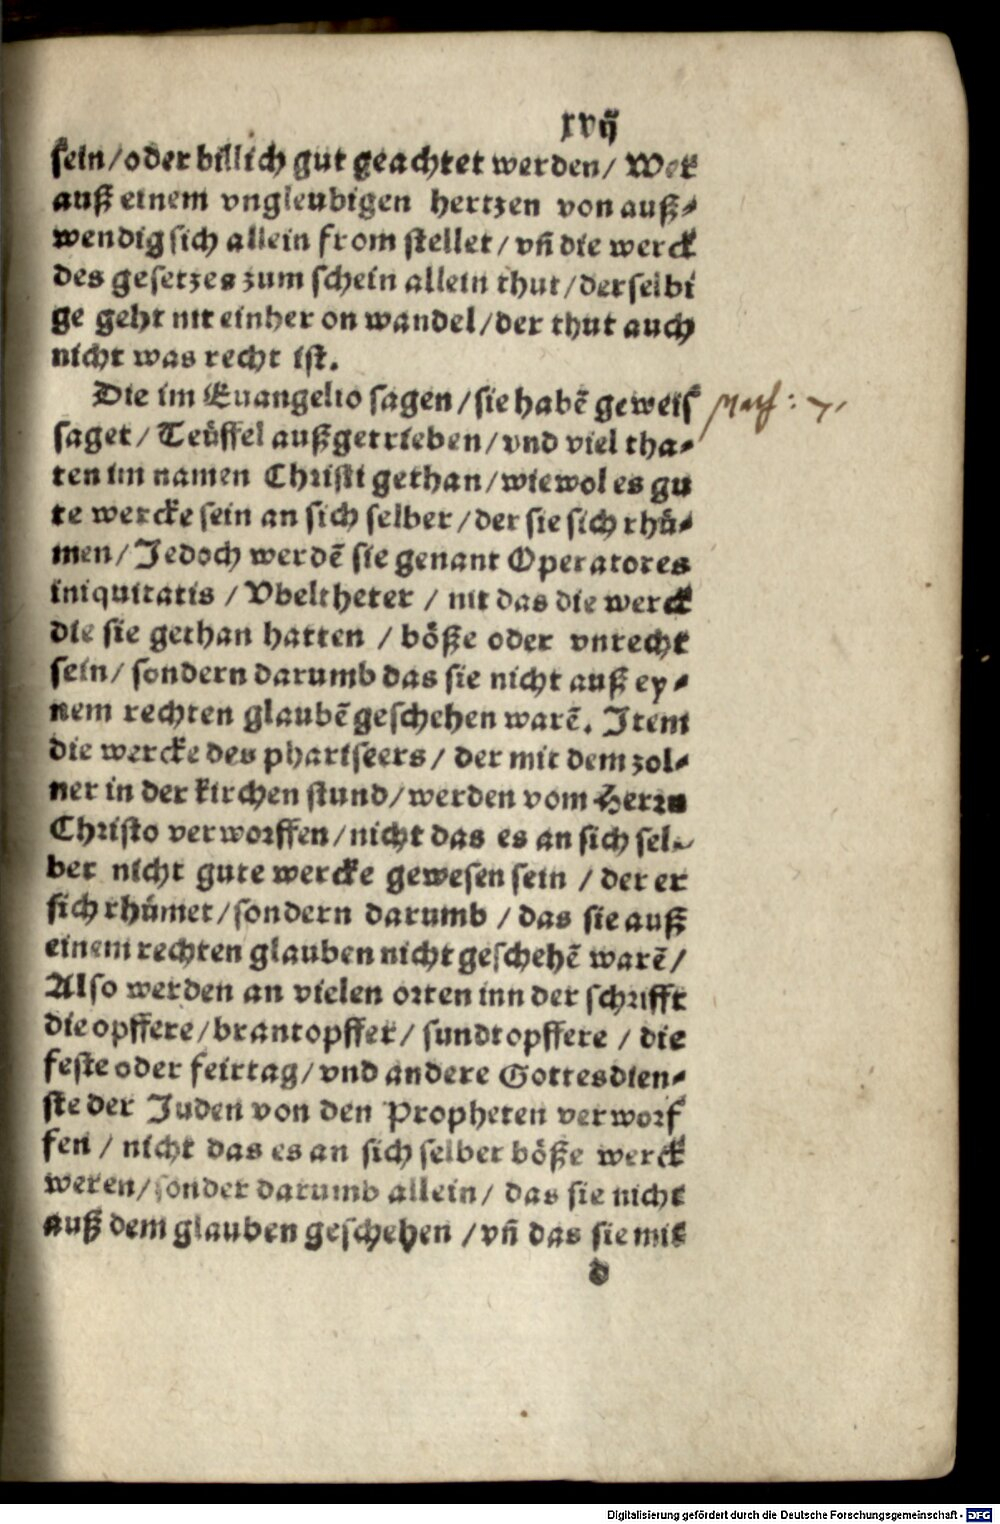 xvij
sein/oder billich gut geachtet werden/ Wer
auß einem vngleubigen hertzen von auß-
wendig sich allein from stellet/vñ die werck
des gesetzes zum schein allein thut/derselbi
ge geht nit einher on wandel/der thut auch
nicht was recht ist.
Die im Euangelio sagen/sie habẽ geweis
saget/ Teüffel außgetrieben/vnd viel tha-
ten im namen Christi gethan/wiewol es gu
te wercke sein an sich selber/der sie sich rhü-
men/Jedoch werdẽ sie genant Operatores
iniquitatis / Vbeltheter / nit das die werck
die sie gethan hatten / böße oder vnrecht
sein/ sondern darumb das sie nicht auß ey-
nem rechten glaubẽ geschehen warẽ. Item
die wercke des phariseers/ der mit dem zol-
ner in der kirchen stund/werden vom Herrn
Christo verworffen/nicht das es an sich sel-
ber nicht gute wercke gewesen sein /der er
sich rhümet/sondern darumb /das sie auß
einem rechten glauben nicht geschehẽ warẽ/
Also werden an vielen orten inn der schrifft
die opffere/brantopffer/ sundtopffere / die
feste oder feirtag/vnd andere Gottesdien-
ste der Juden von den Propheten verworf
fen / nicht das es an sich selber böße werck
weren/sonder darumb allein/ das sie nicht
auß dem glauben geschehen /vñ das sie mit
d
Matth: 7.
Digitalisierung gefördert durch die Deutsche Forschungsgemeinschaft - DFG